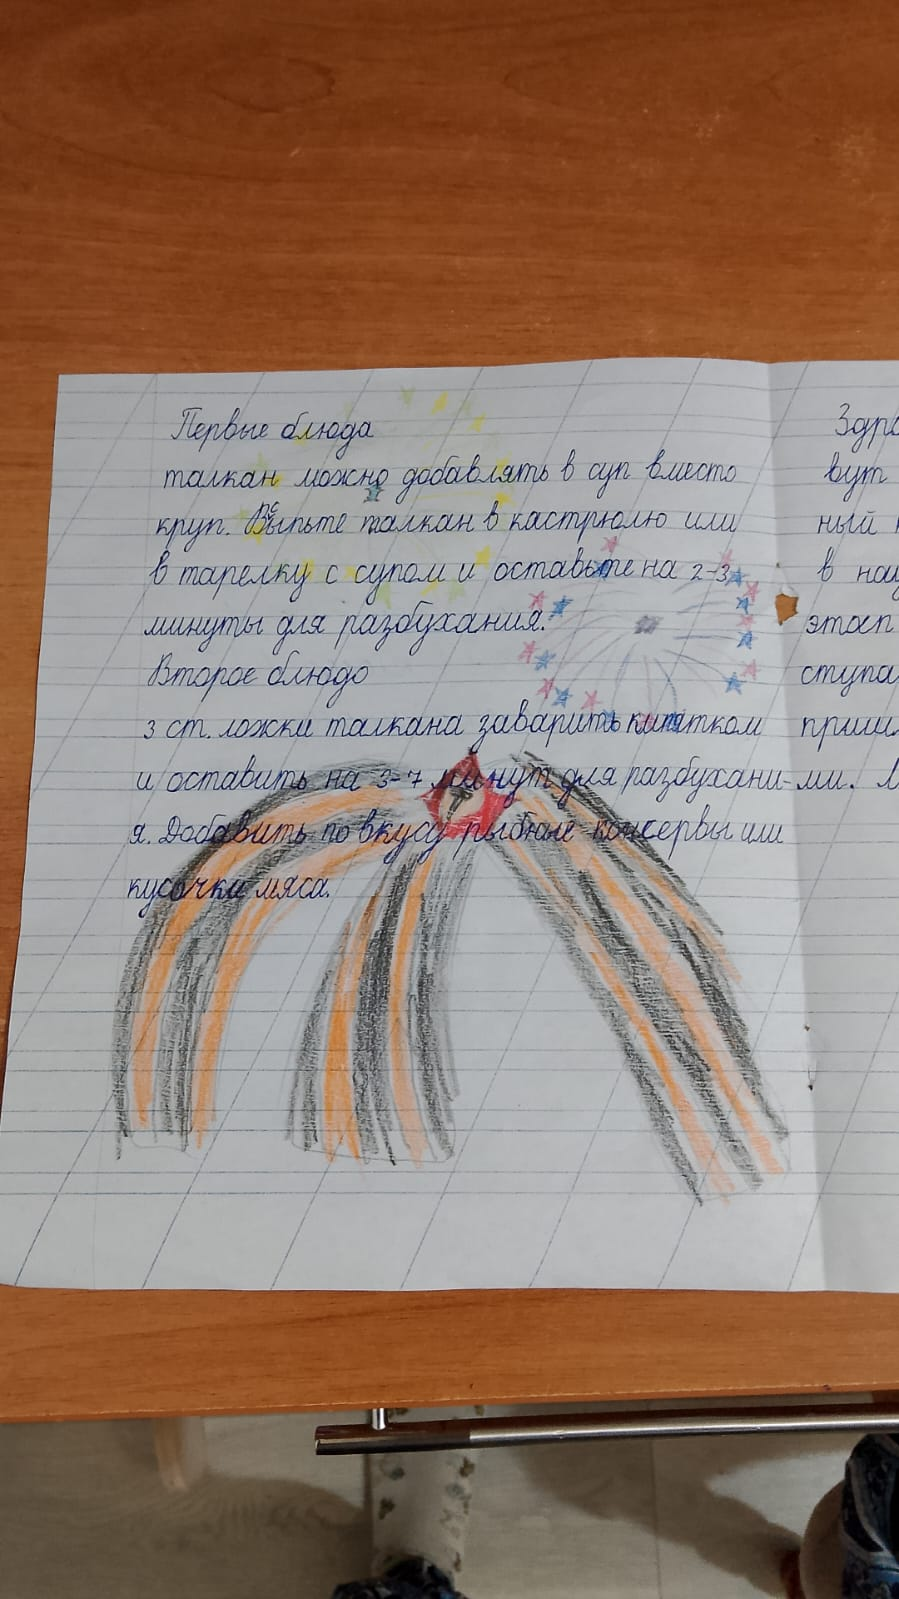 Первые блюда
талкан можно добавлять в суп вместо
круп. Высыпьте талкан в кастрюлю или
в тарелку с супом и оставьте на 2-3
минуты для разбухания.
Второе блюдо
3 ст. ложки талкана заварить кипятком
и оставить на 3-7 минут для разбухани-
я. Добавить по вкусу рыбные консервы или
кусочки мяса.
Здра
вут
ный
в нау
этап
ступа
приш
ми.